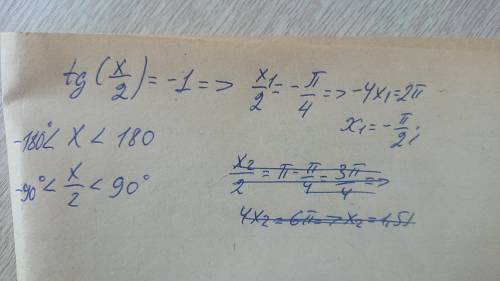 tg(x/2) = -1 => x₁/2 = -π/4 => -4x₁ = 2π
x₁ = -π/2;
-180° < x < 180
-90° < x/2 < 90°
x₂/2 = π - π/4 = 3π/4 =>
4x₂ = 6π => x₂ = 1,5π